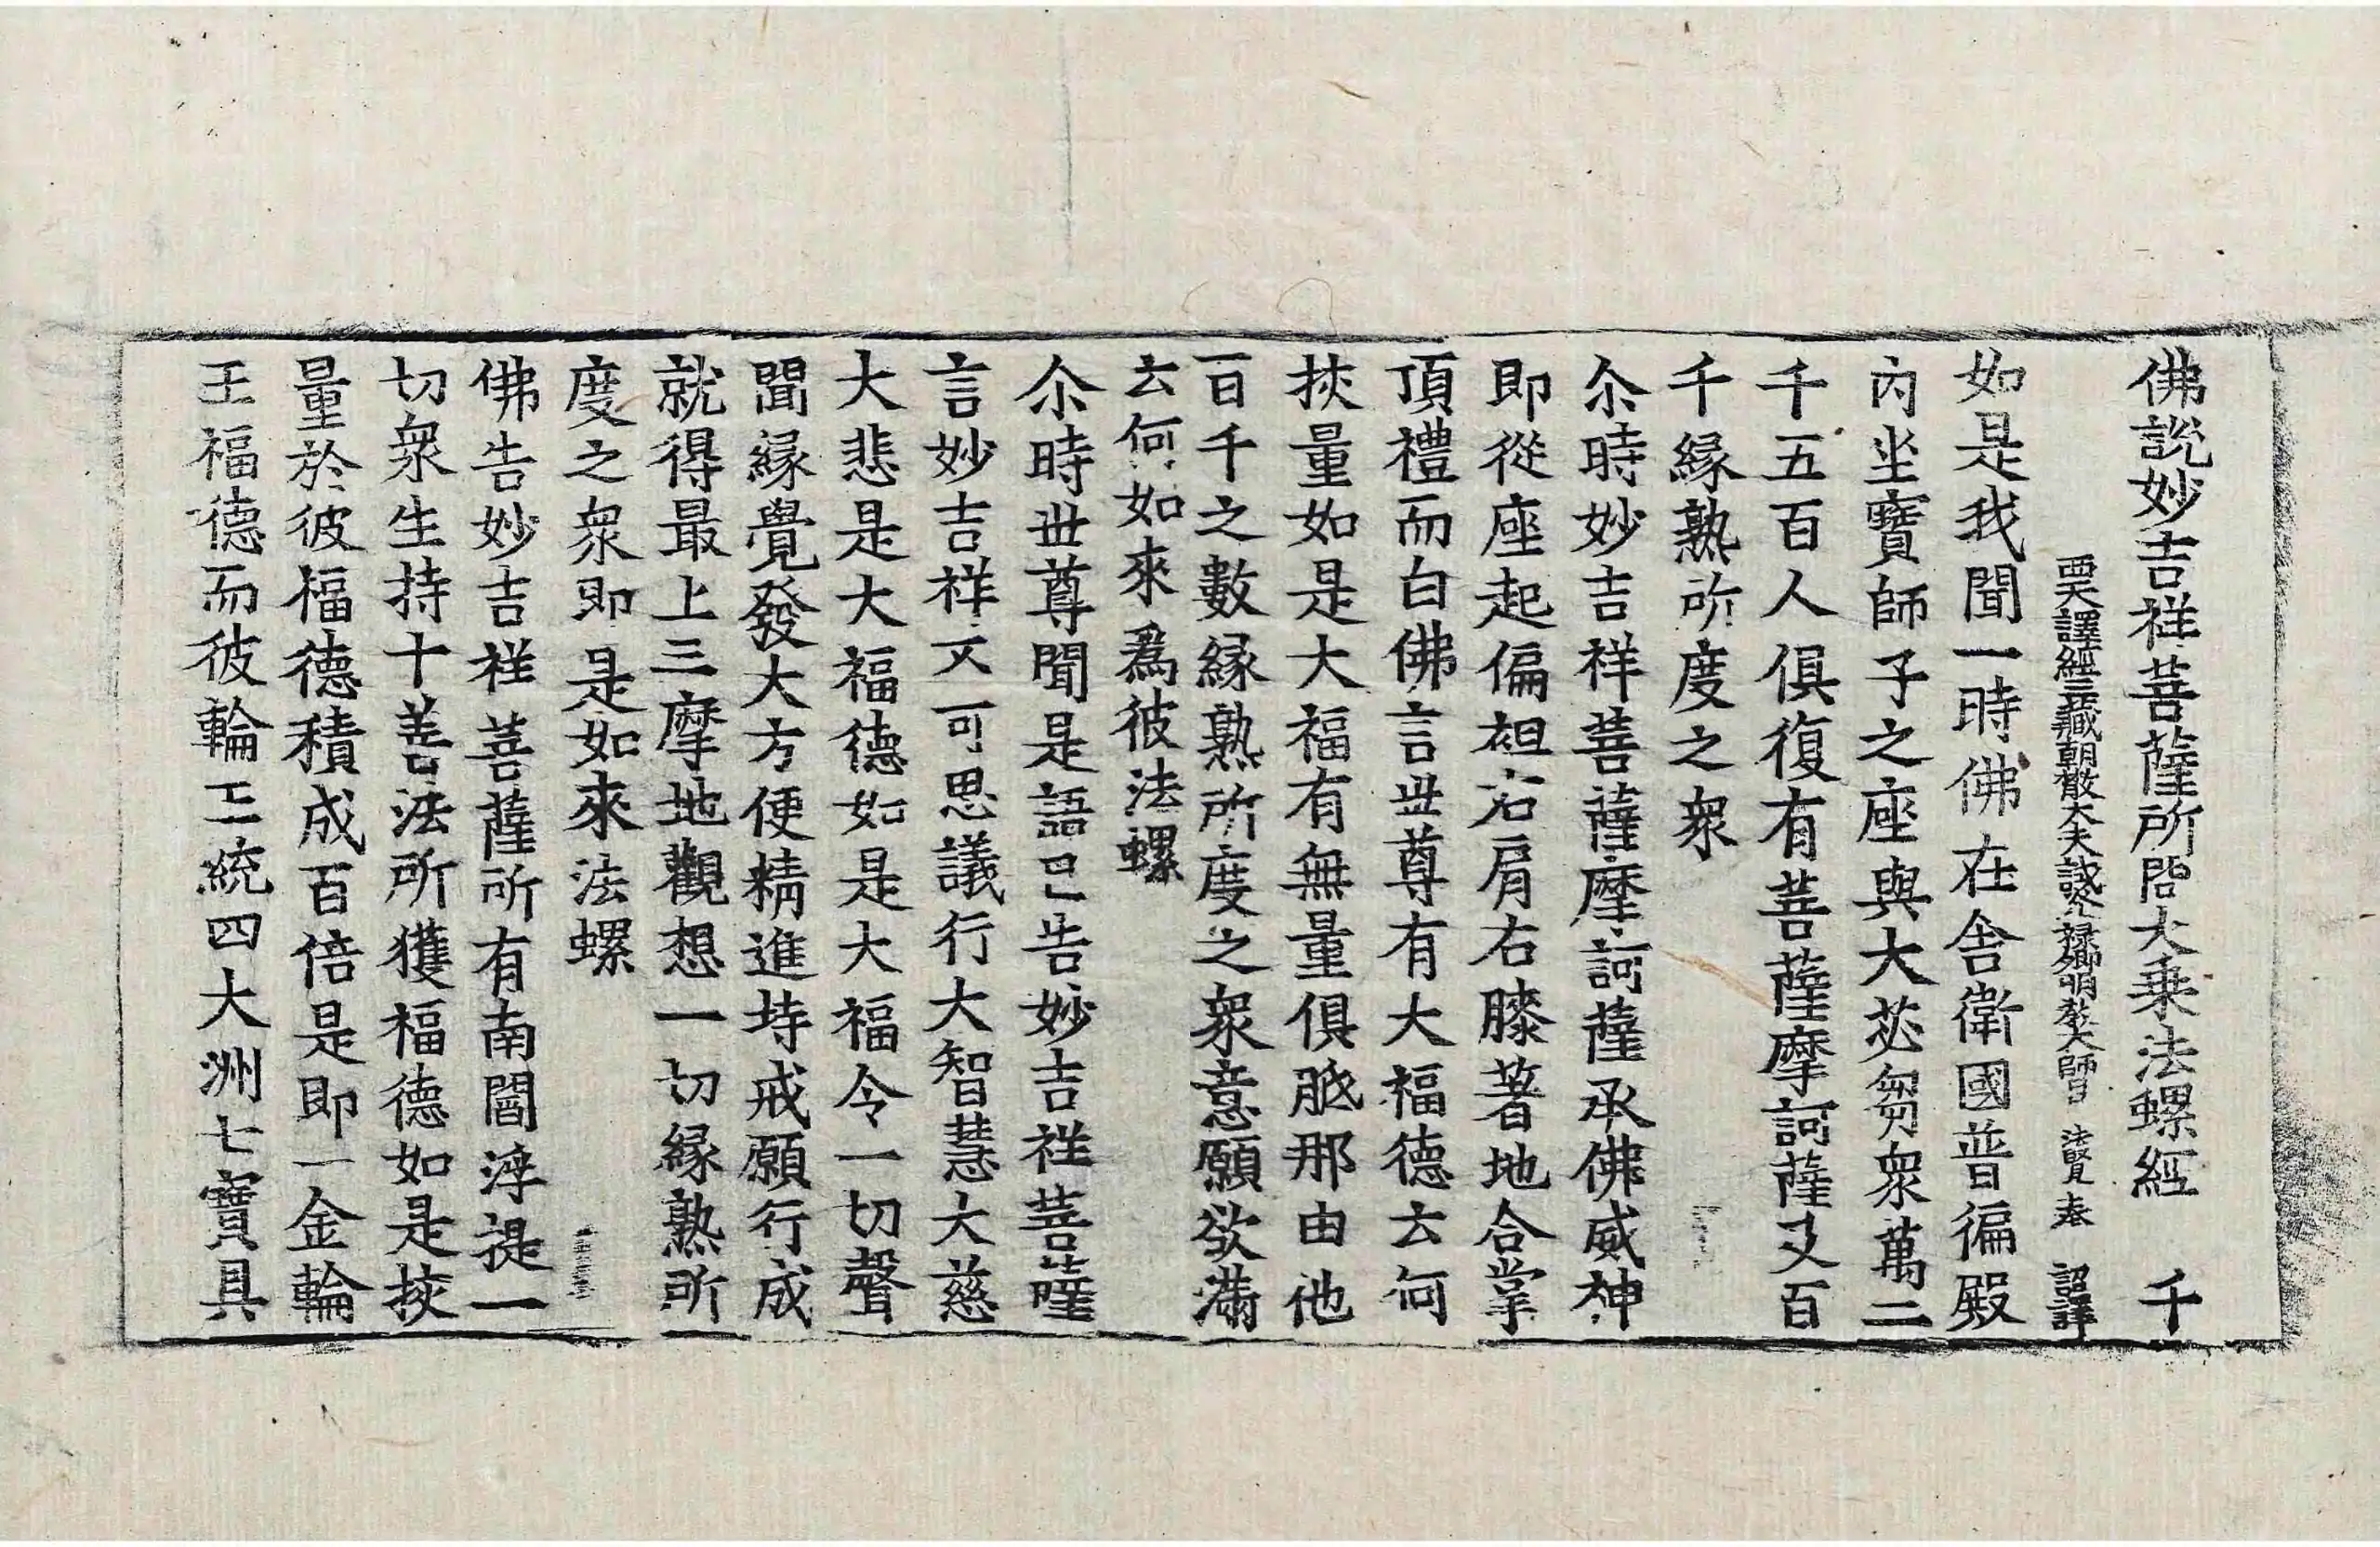 佛說妙吉祥菩薩所問大乗法螺經　千
西天譯經三藏朝散大夫試光祿卿明教大師臣法賢奉　詔譯
如是我聞一時佛在舍衛國普徧殿
內坐寶師子之座與大苾芻衆萬二
千五百人俱復有菩薩摩訶薩又百
千緣熟所度之衆
尒時妙吉祥菩薩摩訶薩承佛威神
即從座起偏袒右肩右膝著地合掌
頂禮而白佛言世尊有大福德云何
挍量如是大福有無量俱胝那由他
百千之數緣熟所度之衆意願欲滿
云何如來爲彼法螺
尒時世尊聞是語已告妙吉祥菩薩
言妙吉祥不可思議行大智慧大慈
大悲是大福德如是大福令一切聲
聞緣覺發大方便精進持戒願行成
就得最上三摩地觀想一切緣熟所
度之衆即是如來法螺
佛告妙吉祥菩薩所有南閻浮提一
切衆生持十善法所獲福德如是挍
量於彼福德積成百倍是即一金輪
王福德而彼輪王統四大洲七寶具